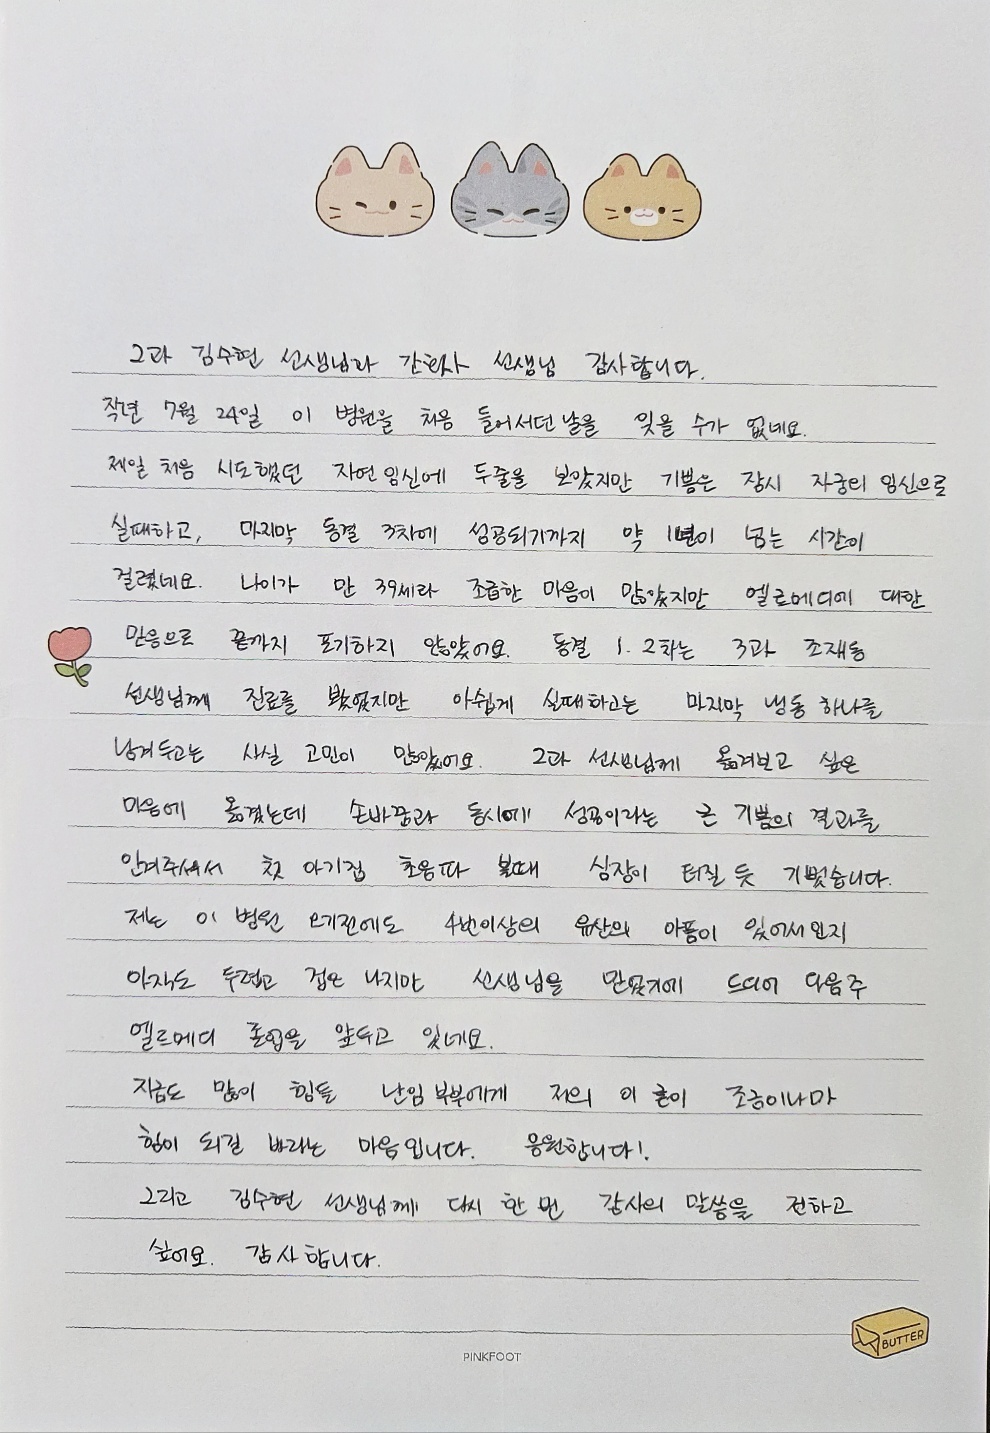 2과 김수현 선생님과 간호사 선생님 감사합니다.
작년 7월 24일 이 병원을 처음 들어서던 날을 잊을 수가 없네요.
제일 처음 시도했던 자연임신에 두줄을 보았지만 기쁨은 잠시 자궁외 임신으로
실패하고, 마지막 동결 3차에 성공되기까지 약 1년이 넘는 시간이
걸렸네요. 나이가 만 39세라 조급한 마음이 많았지만 엘르메디에 대한
믿음으로 끝까지 포기하지 않았어요. 동결 1. 2차는 3과 조재동
선생님께 진료를 봤었지만 아쉽게 실패하고는 마지막 냉동 하나를
남겨두고는 사실 고민이 많았어요. 2과 선생님께 옮겨보고 싶은
마음에 옮겼는데 손바뀜과 동시에 성공이라는 큰 기쁨의 결과를
안겨주셔서 첫 아기집 초음파 볼때 심장이 터질 듯 기뻤습니다.
저는 이 병원 오기전에도 4번이상의 유산의 아픔이 있어서인지
아직도 두렵고 겁은 나지만 선생님을 만났기에 드디어 다음주
엘르메디 졸업을 앞두고 있네요.
지금도 많이 힘들 난임부부에게 저의 이 글이 조금이나마
힘이 되길 바라는 마음입니다. 응원합니다!
그리고 김수현 선생님께 다시 한 번 감사의 말씀을 전하고
싶어요. 감사합니다.
BUTTER
PINKFOOT